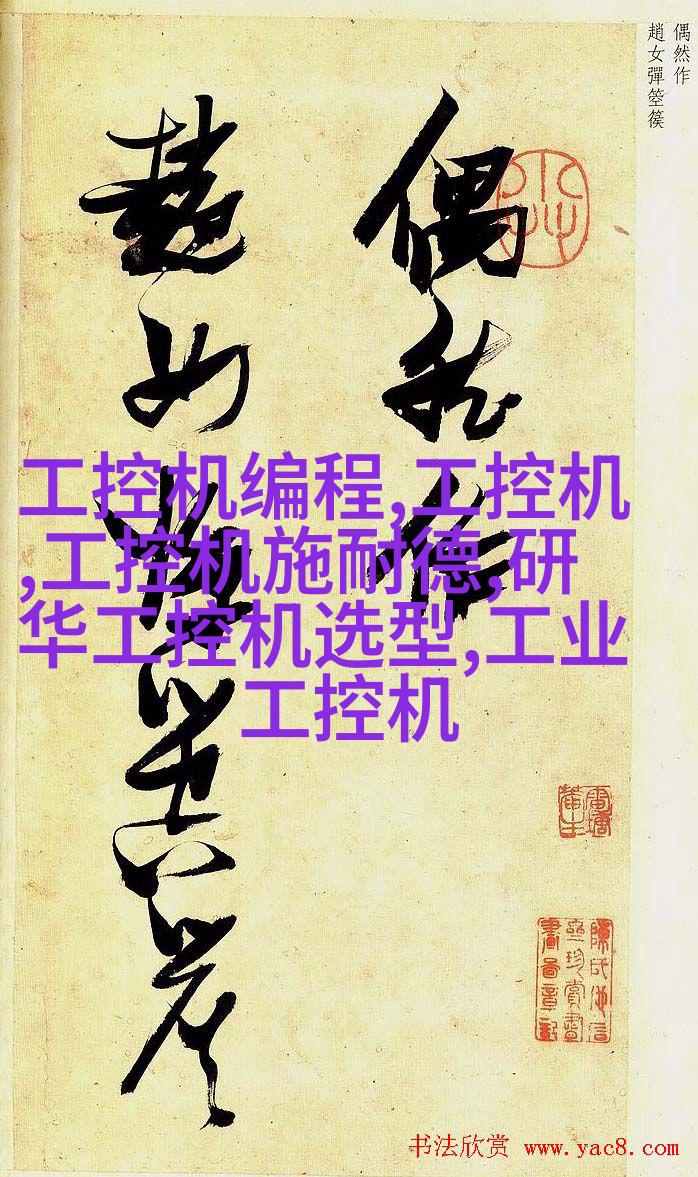 偶然作
趙女彈箜篌
偶然作
趙女彈箜篌
工控机编程,工控机
,工控机施耐德,研
华工控机选型,工业
工控机
书法欣赏 www.yac8.com